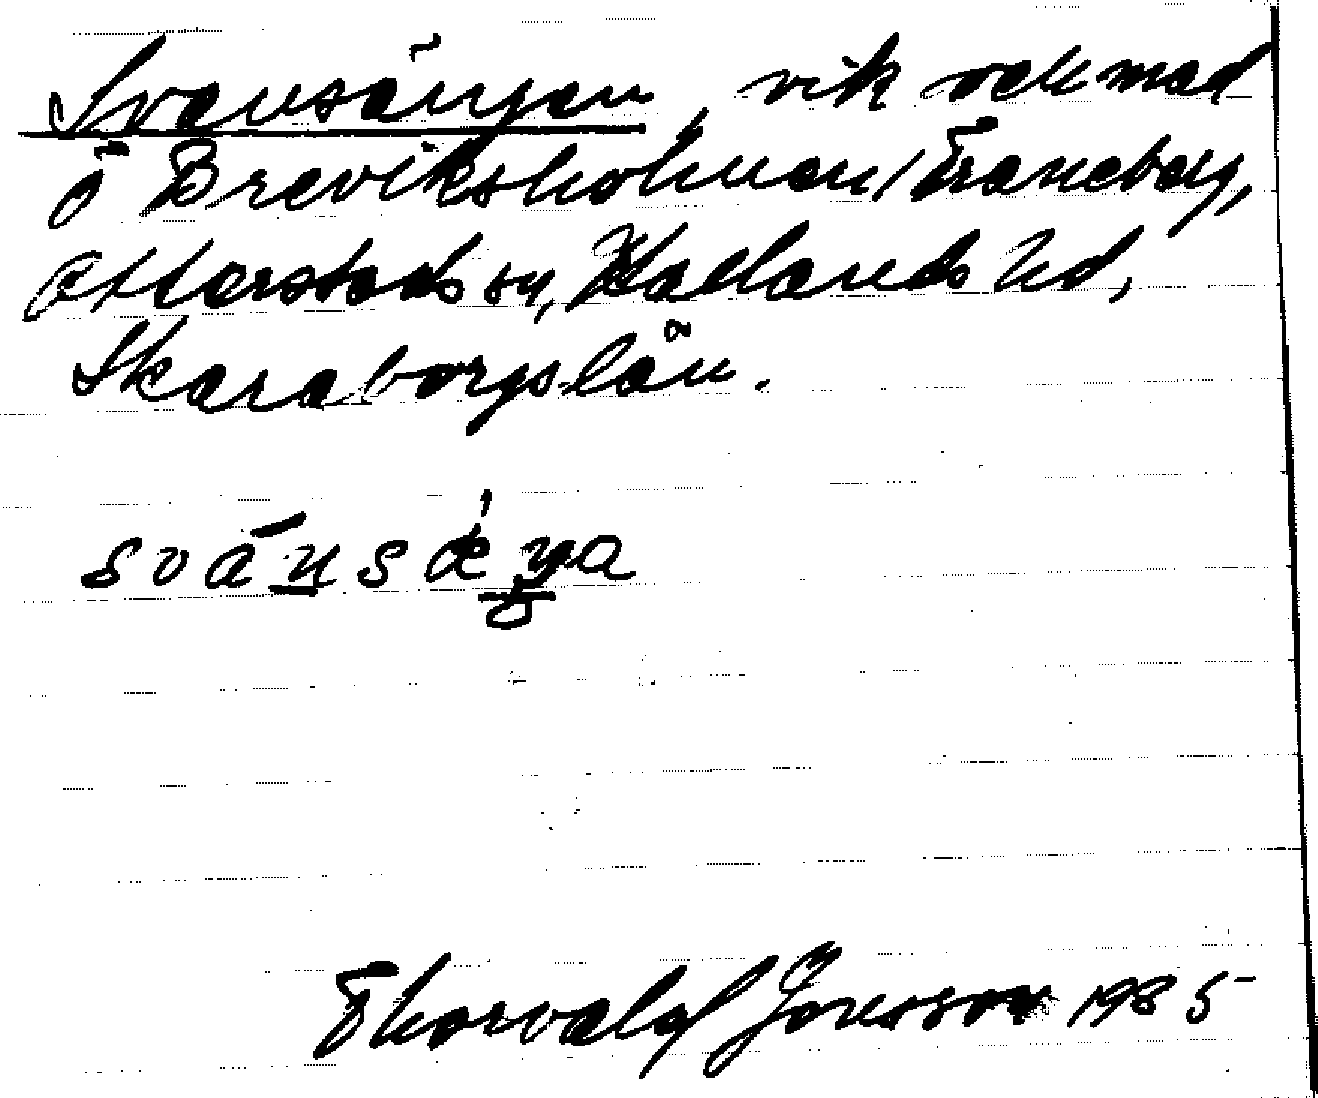 Svansängen, vik och mad
ö Breviksholmen, Traneberg,
Otterstads sn, Kållands hd,
Skaraborgs län.
svānsǽŋa
Thorvald Jonsson 1985